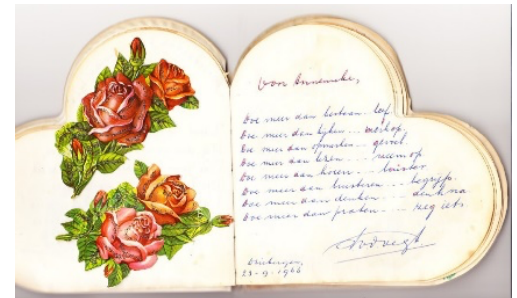 Voor Annemieke,
Doe meer dan bestaan.. leef.
Doe meer dan kijken... merk op.
Doe meer dan opmerken... gevoel.
Doe meer dan lezen... neem op
Doe meer dan horen... luister
Doe meer dan luisteren... begrijp.
Doe meer dan denken... denk na
Doe meer dan praten... zeg iets.
Driebergen,
23-9-1966